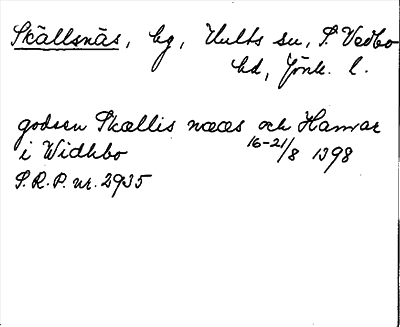 Skällsnäs, hg, Hults sn, S. Vedbo
hd, Jönk. l.
godsen Skællis næes och Hamrar
i Widhbo 16-21/8 1398
S.R.P. nr. 2935